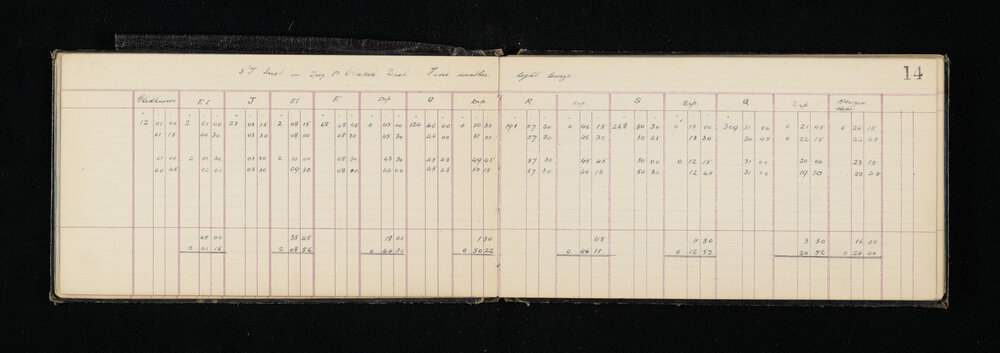 5" T Inst in Trig Pt Otahia Dist Fine weather light breeze
14
El J El E Dip U Dip R Dip S Dip Q Dip Horizon
12 01 00 2 01 00 23 03 15 2 08 15 68 08 15 0 45 00 124 46 00 0 50 30 191 57 30 0 46 15 238 50 30 0 13 00 309 31 00 0 21 45 0 24 15
01 15 00 30 03 30 08 00 08 30 45 30 46 00 51 00 57 30 46 30 50 45 13 30 30 45 0 22 15 24 45
01 00 2 01 30 03 30 2 10 00 08 30 43 30 45 45 49 45 57 30 45 45 50 00 0 12 15 31 00 20 00 23 15
00 45 02 00 03 30 09 30 08 00 44 00 45 45 50 15 57 30 46 15 50 30 12 45 31 00 19 30 23 45
05 00 35 45 18 00 1 30 45 11 30 3 30 16 00
2 01 15 2 08 56 0 44 30 0 50 22 0 46 11 0 12 52 20 52 0 24 00